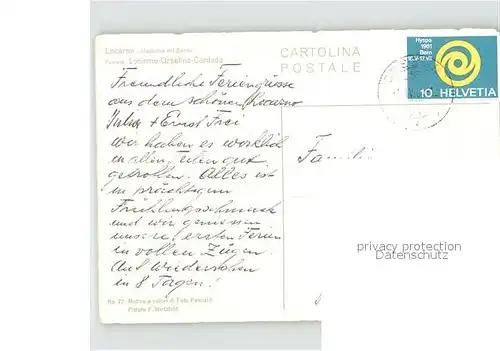 Locarno - Madonna del Sasso
Funivia Locarno-Orselina-Cardada
CARTOLINA
POSTALE
Hyspa
1961
Bern
10 HELVETIA
Freundliche Feriengrüsse
aus dem schönen Locarno
+ Ernst Frei
Wir haben es wirklich
in allen Teilen gut
getroffen. Alles ist
in prächtigem
Frühlingsschmuck
und wir geniessen
unsere ersten Ferien
in vollen Zügen.
Auf Wiedersehen
in 8 Tagen!
Famili
privacy protection
Datenschutz
No. 72